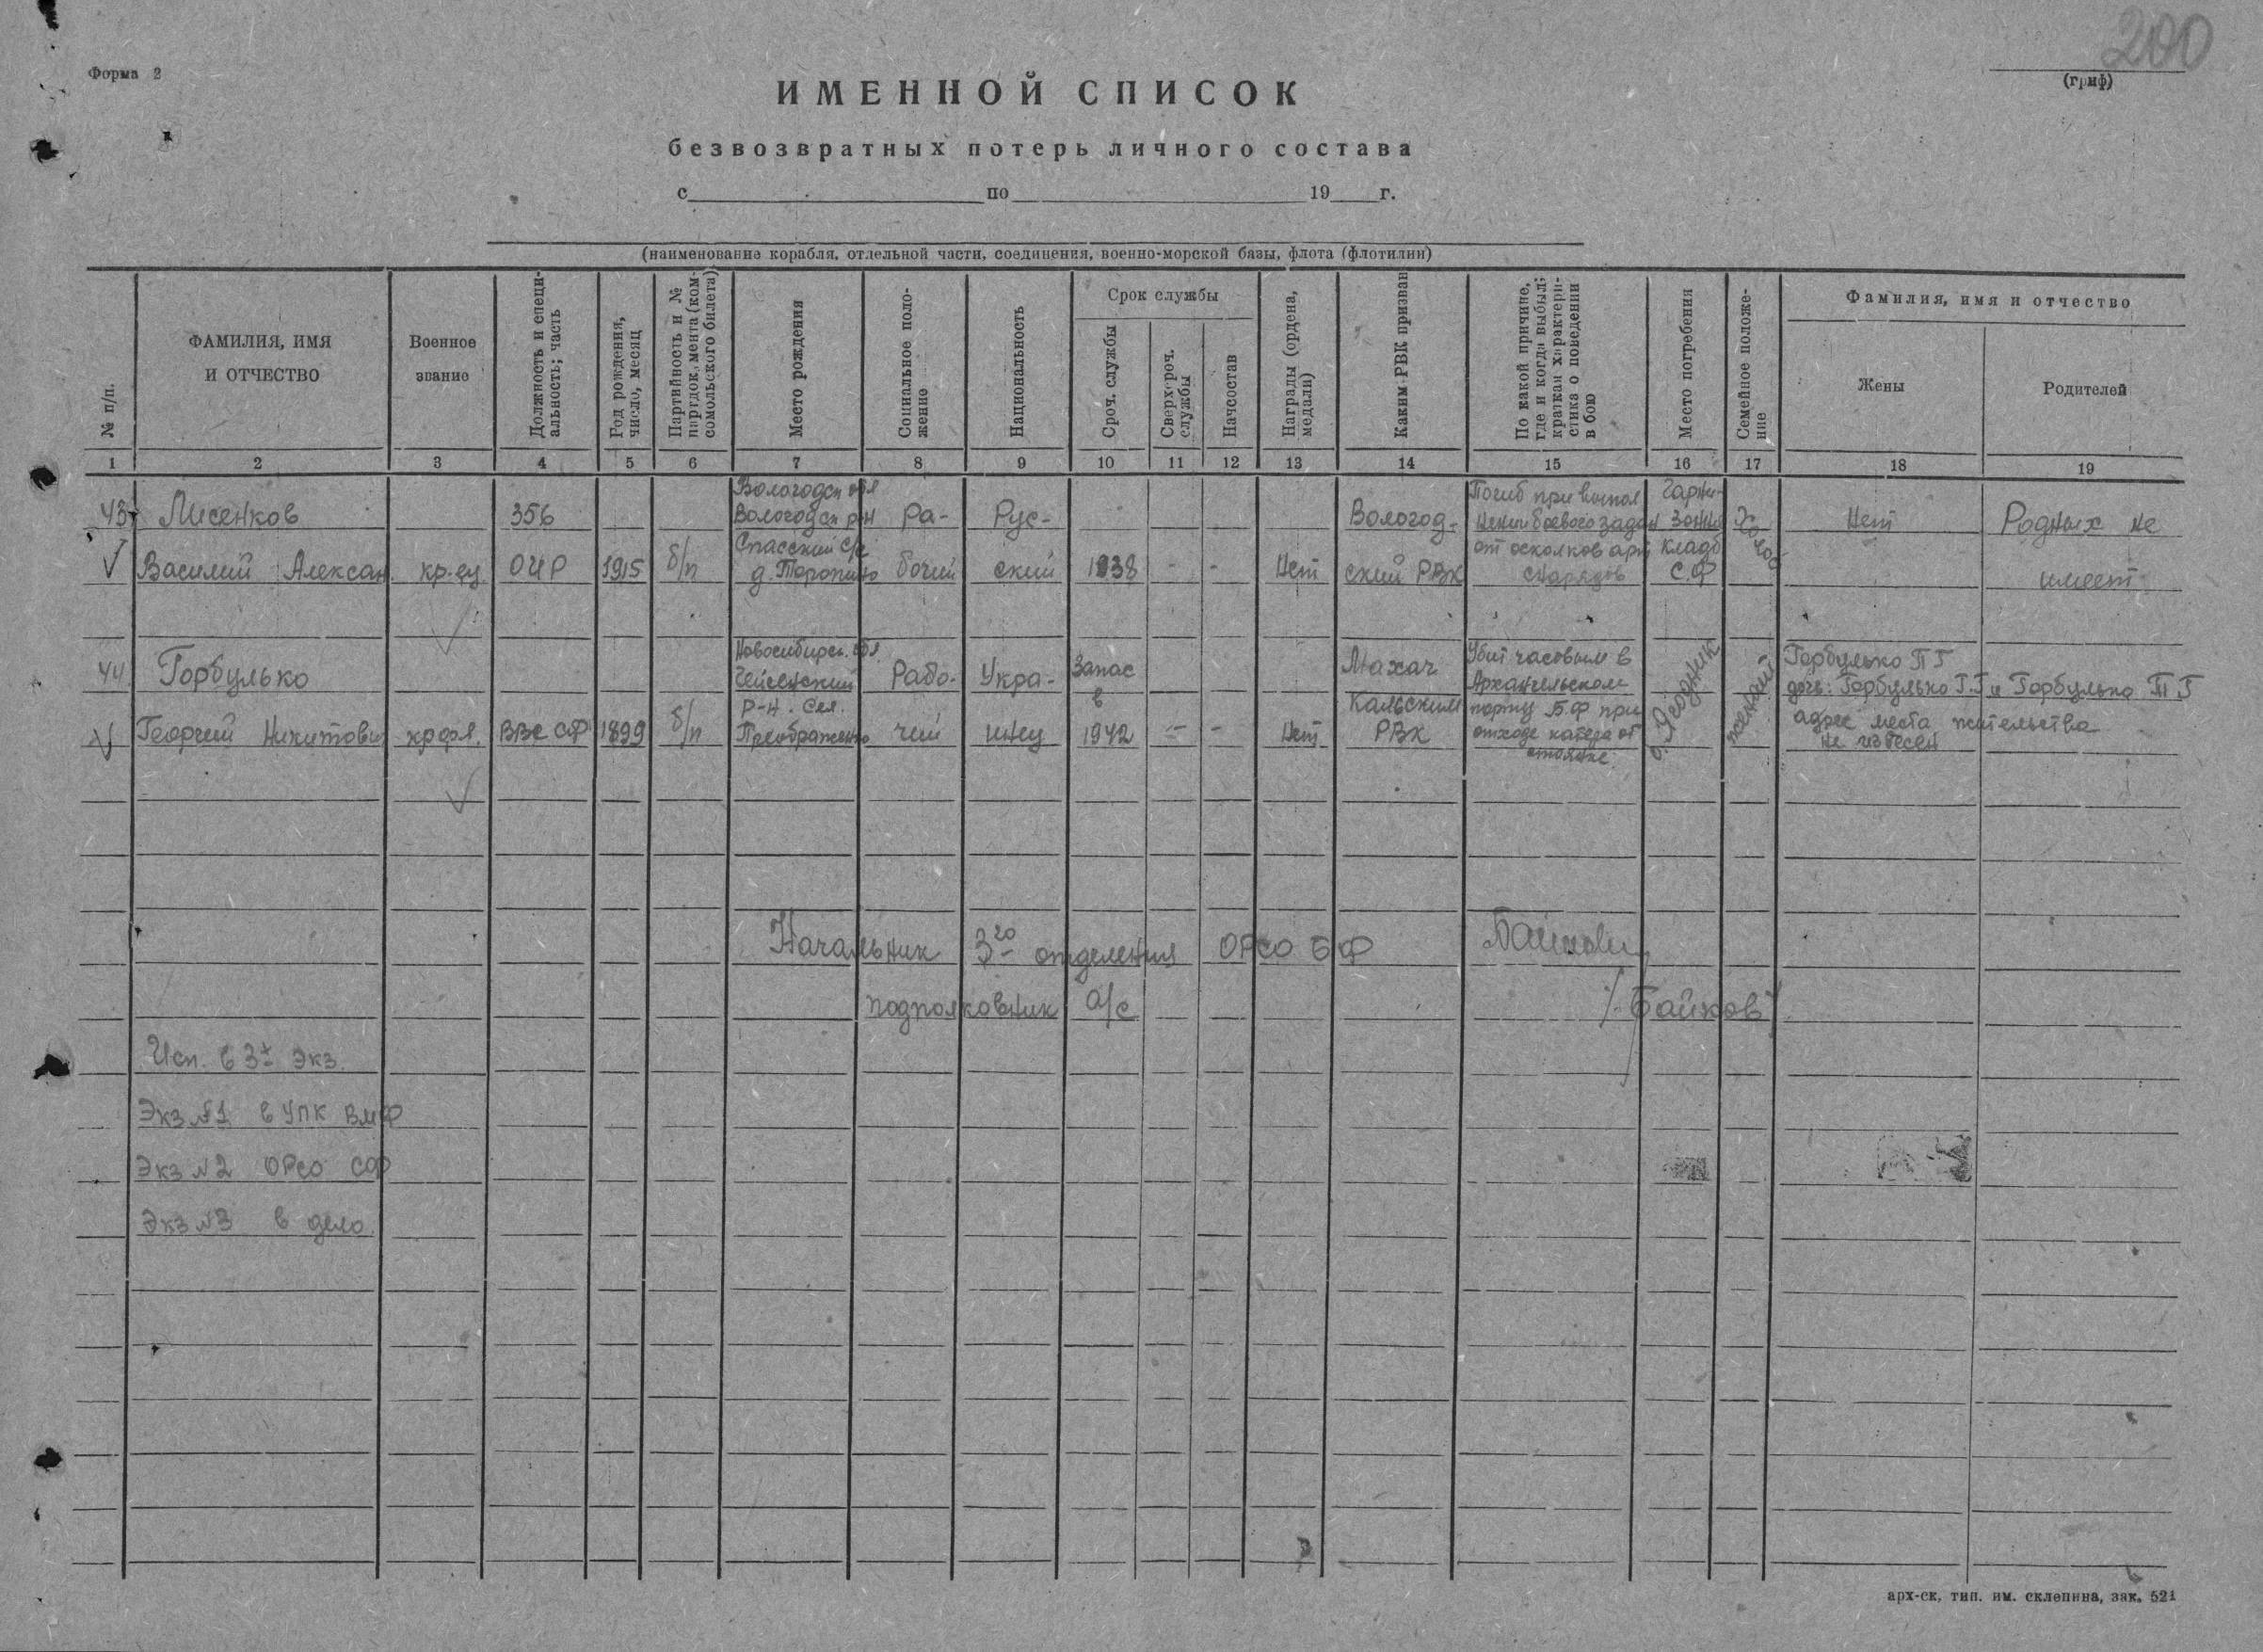 200
Форма 2
(гриф)
ИМЕННОЙ СПИСОК
безвозвратных потерь личного состава
с по 19 г.
(наименование корабля, отдельной части, соединения, военно-морской базы, флота (флотилии)
№ п/п.
ФАМИЛИЯ, ИМЯ
И ОТЧЕСТВО
Военное
звание
Должность и специ-
альность; часть
Год рождения,
число, месяц
Партийность и №
партдокумента (ком-
сомольского билета)
Место рождения
Социальное поло-
жение
Национальность
Срок службы
Сроч. службы
Сверхсроч.
службы
Начсостав
Награды (ордена,
медали)
Каким РВК призван
По какой причине,
где и когда выбыл;
краткая характери-
стика о поведении
в бою
Место погребения
Семейное положе-
ние
Фамилия, имя и отчество
Жены
Родителей
1 2 3 4 5 6 7 8 9 10 11 12 13 14 15 16 17 18 19
43
Лисенков
Василий Алексан.
кр-ец
356
ОИР
1915
б/п
Вологодск обл
Вологодск р-н
Спасский с/с
д. Торопино
Ра-
бочий
Рус-
ский
1938
- -
Нет
Вологод-
ский РВК
Погиб при выпол
нении боевого задан
от осколков арт
снарядов
Гарни-
зонн
кладб
С.Ф
Холост
Нет
Родных не
имеет
44
Горбулько
Георгий Никитович
кр фл.
ВВС СФ
1899
б/п
Новосибирск. обл
р-н. Сел.
Преображенко
Рабо-
чий
Укра-
инец
Запас
в
1942
- -
Нет
Махач
Кальским
РВК
Убит часовым в
Архангельском
порту Б.Ф при
отходе катера от
стоянке
о. Ягодник
женатый
Горбулько П Г
дочь: Горбулько Г.Г и Горбулько Т Г
адрес места жительства
не известен
Начальник 3го отделения ОРСО БФ
подполковник а/с
/Байков/
Исп. в 3х экз.
Экз №1 в УПК ВМФ
Экз №2 ОРСО СФ
Экз №3 в дело.
арх-ск, тип. им. склепина, зак. 521